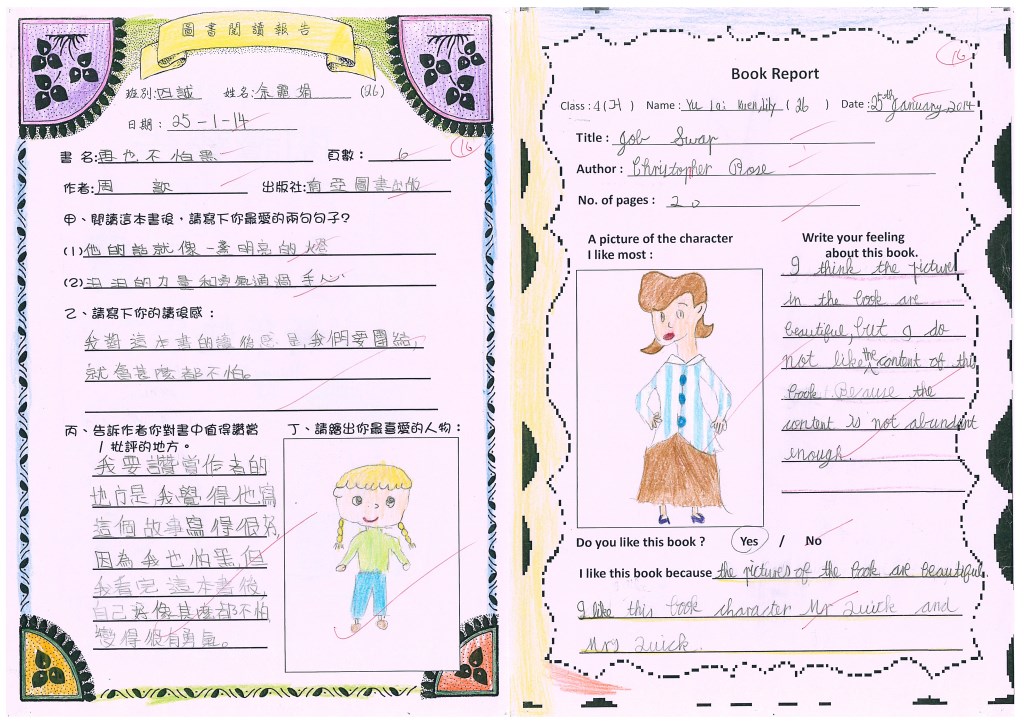 圖書閱讀報告
班別:四誠 姓名:余麗娟 (26)
日期: 25-1-14
16
書名:再也不怕黑 頁數: 6
作者:周 歆 出版社:育亞圖書出版
甲、閱讀這本書後，請寫下你最愛的兩句句子?
(1)他的話就像一盞明亮的燈
(2)汩汩的力量和勇氣通過手心
乙、請寫下你的讀後感:
我對這本書的讀後感是,我們要團結,
就會甚麼都不怕。
丙、告訴作者你對書中值得讚賞
/ 批評的地方。
我要讚賞作者的
地方是,我覺得他寫
這個故事寫得很好,
因為我也怕黑,但
我看完這本書後,
自己好像甚麼都不怕,
變得很有勇氣。
丁、請繪出你最喜愛的人物:
16
Book Report
Class : 4 ( ) Name : Yu Lai Kuen,Lily ( 26 ) Date :25th January,2014
Title : Job Swap
Author : Christopher Rose
No. of pages : 20
A picture of the character
I like most :
Write your feeling
about this book.
I think the pictures
in the book are
beautiful, but I do
not like the content of this
book. Because the
content is not abundant
enough.
Do you like this book ? Yes / No
I like this book because the pictures of the book are beautiful.
I like this book character Mr Quick and
Mrs Quick.